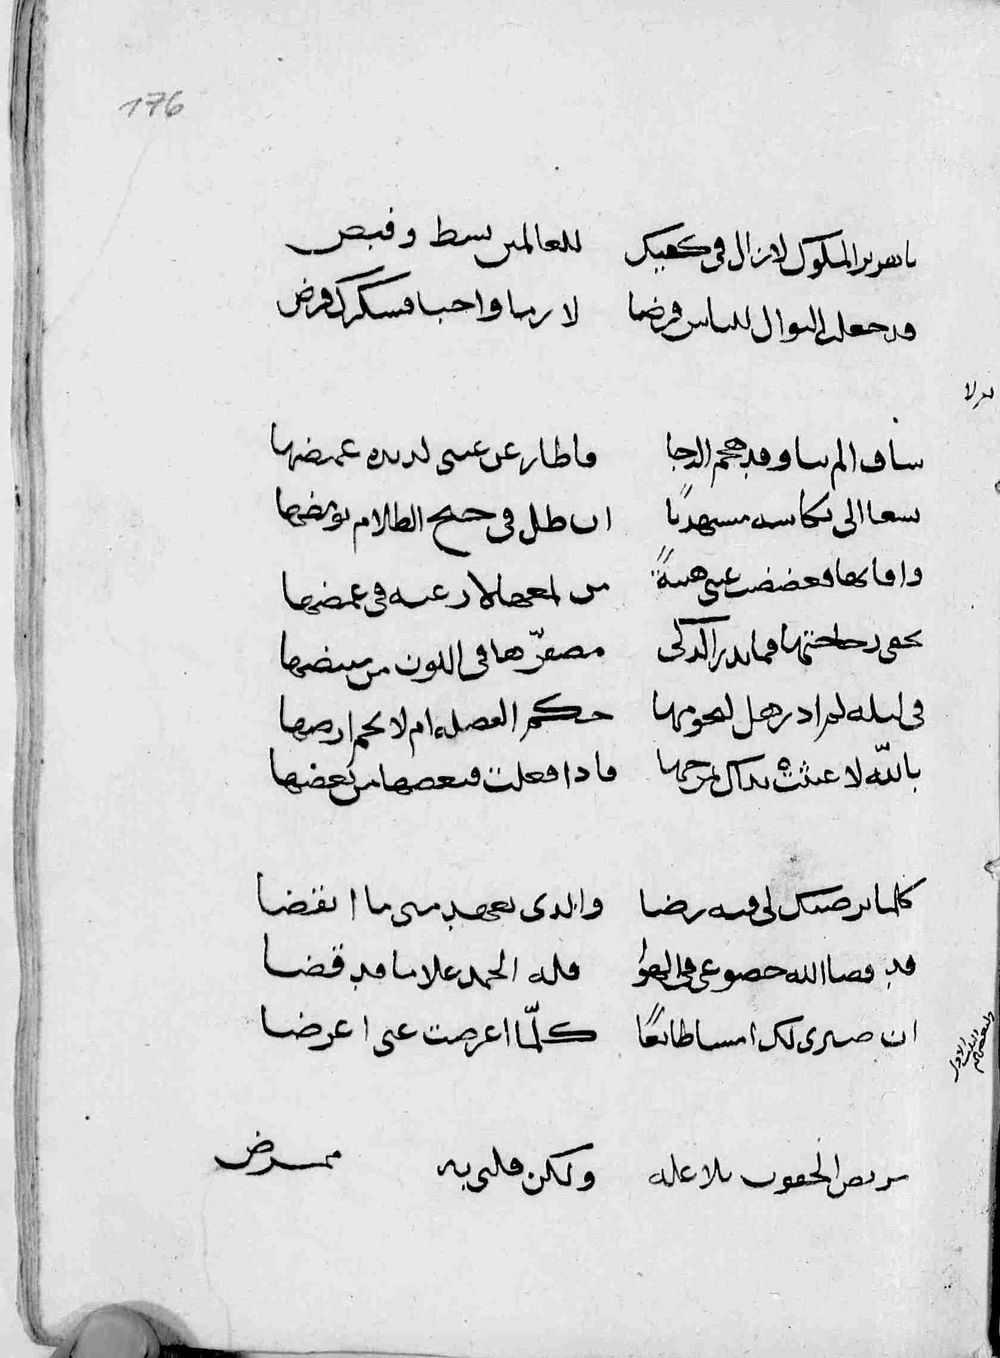 176
يا هرير الملوك لا زال في كفيك للعالمين بسط وقبض
قد جعلت النوال للناس فرضا لا ريبا واجبا فشكرك فرض
ساق الم بنا وقد هجم الدجا فاطار عن عيني لذيذه غمضها
يسعا الى بكاسه مستهديا ان ظل في جنح الظلام بومضها
وافا بها فغضضت عيني هيبةً من لمعها لا رغبه في غمضها
مصفرّها في اللون من مبيضها
في ليله لم ادر هل لنجومها حكم ام لا
بالله لا عبثت يداك بمزجها فاذا فعلت فبعضها من بعضها
كلما يرضيك لي فيه رضا والذي تعهد مني ما انقضا
قد قضا الله خضوعي في الهوا فله الحمد علا ما قد قضا
ان صبري لك امسا طائعًا كلّما اعرضت عني اعرضا
مريض الجفون بلا عله ولكن قلبي به ممرض